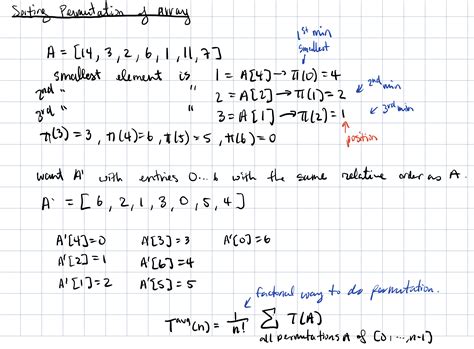 Sorting Permutation of Array
1st min
smallest
A = [14, 3, 2, 6, 1, 11, 7]
smallest element is 1 = A[4] → π(0) = 4
2nd " " 2 = A[2] → π(1) = 2 ← 2nd min
3rd " " 3 = A[1] → π(2) = 1 ← 3rd min
π(3) = 3, π(4) = 6, π(5) = 5, π(6) = 0
↑ position
want A' with entries 0...6 with the same relative order as A.
A' = [6, 2, 1, 3, 0, 5, 4]
A'[4]=0 A'[3]=3 A'[0]=6
A'[2]=1 A'[6]=4
A'[1]=2 A'[5]=5
factorial way to do permutation.
T^avg(n) = 1/n! ∑ T(A)
all permutations A of [0,...,n-1]